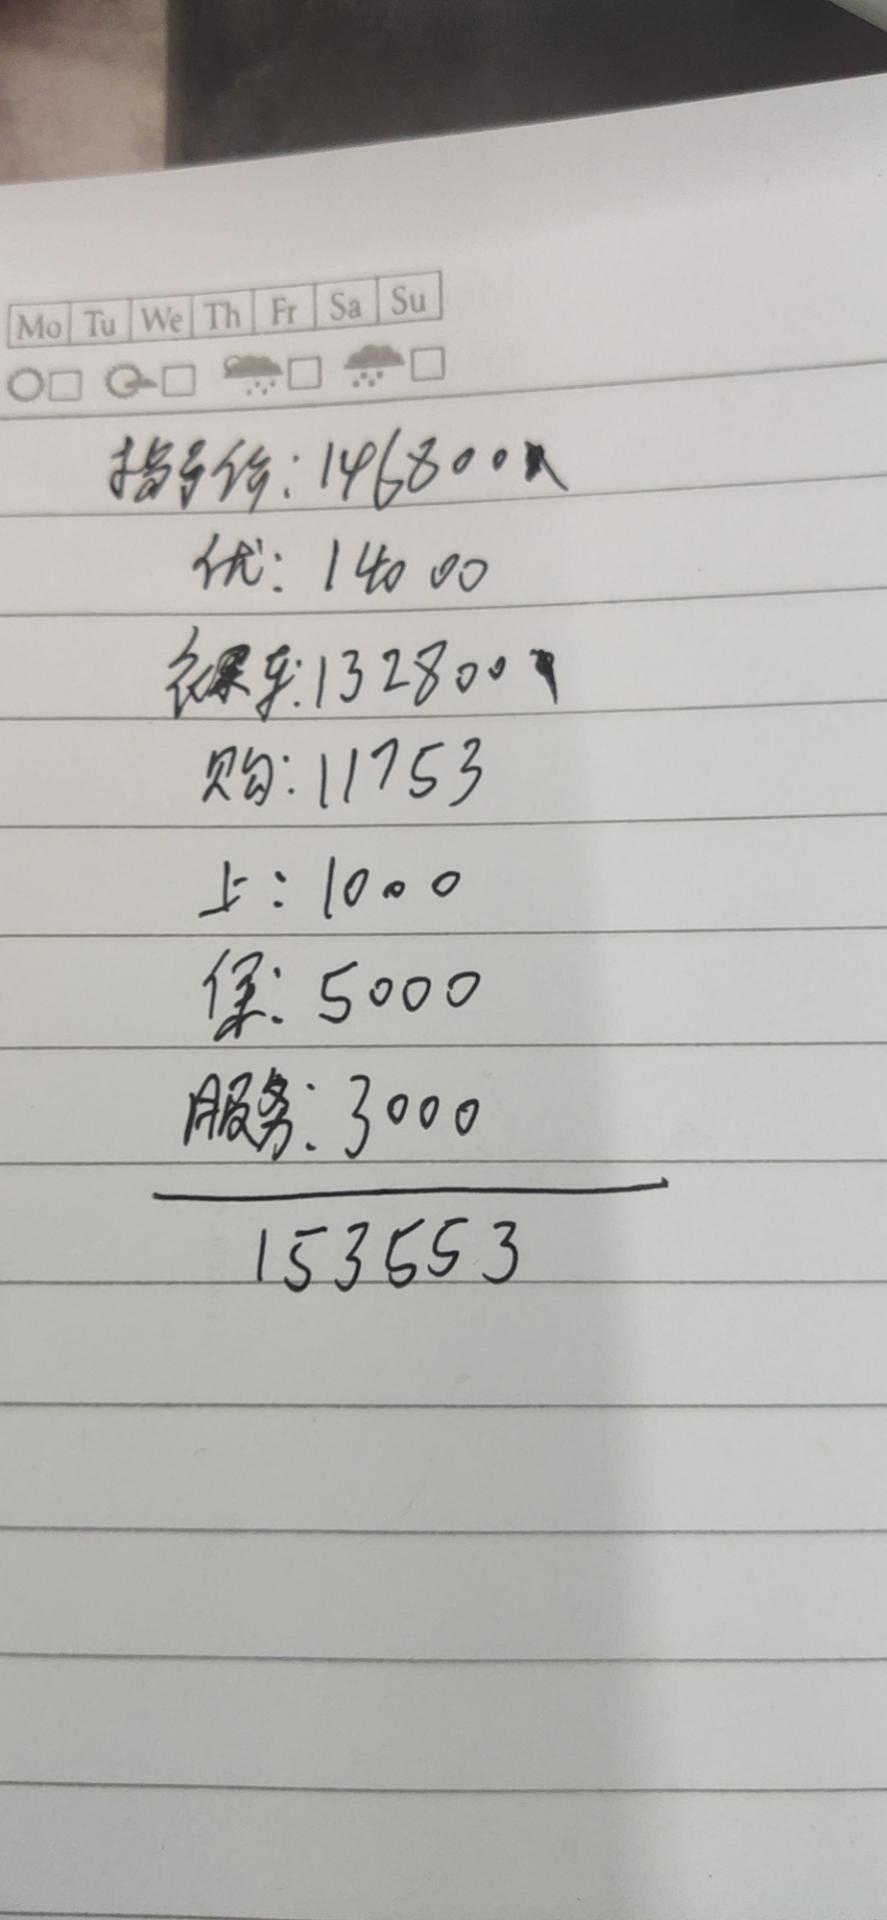 Mo Tu We Th Fr Sa Su
指导价:146800
优:14000
裸车:132800
购:11753
上:1000
保:5000
服务:3000
153553